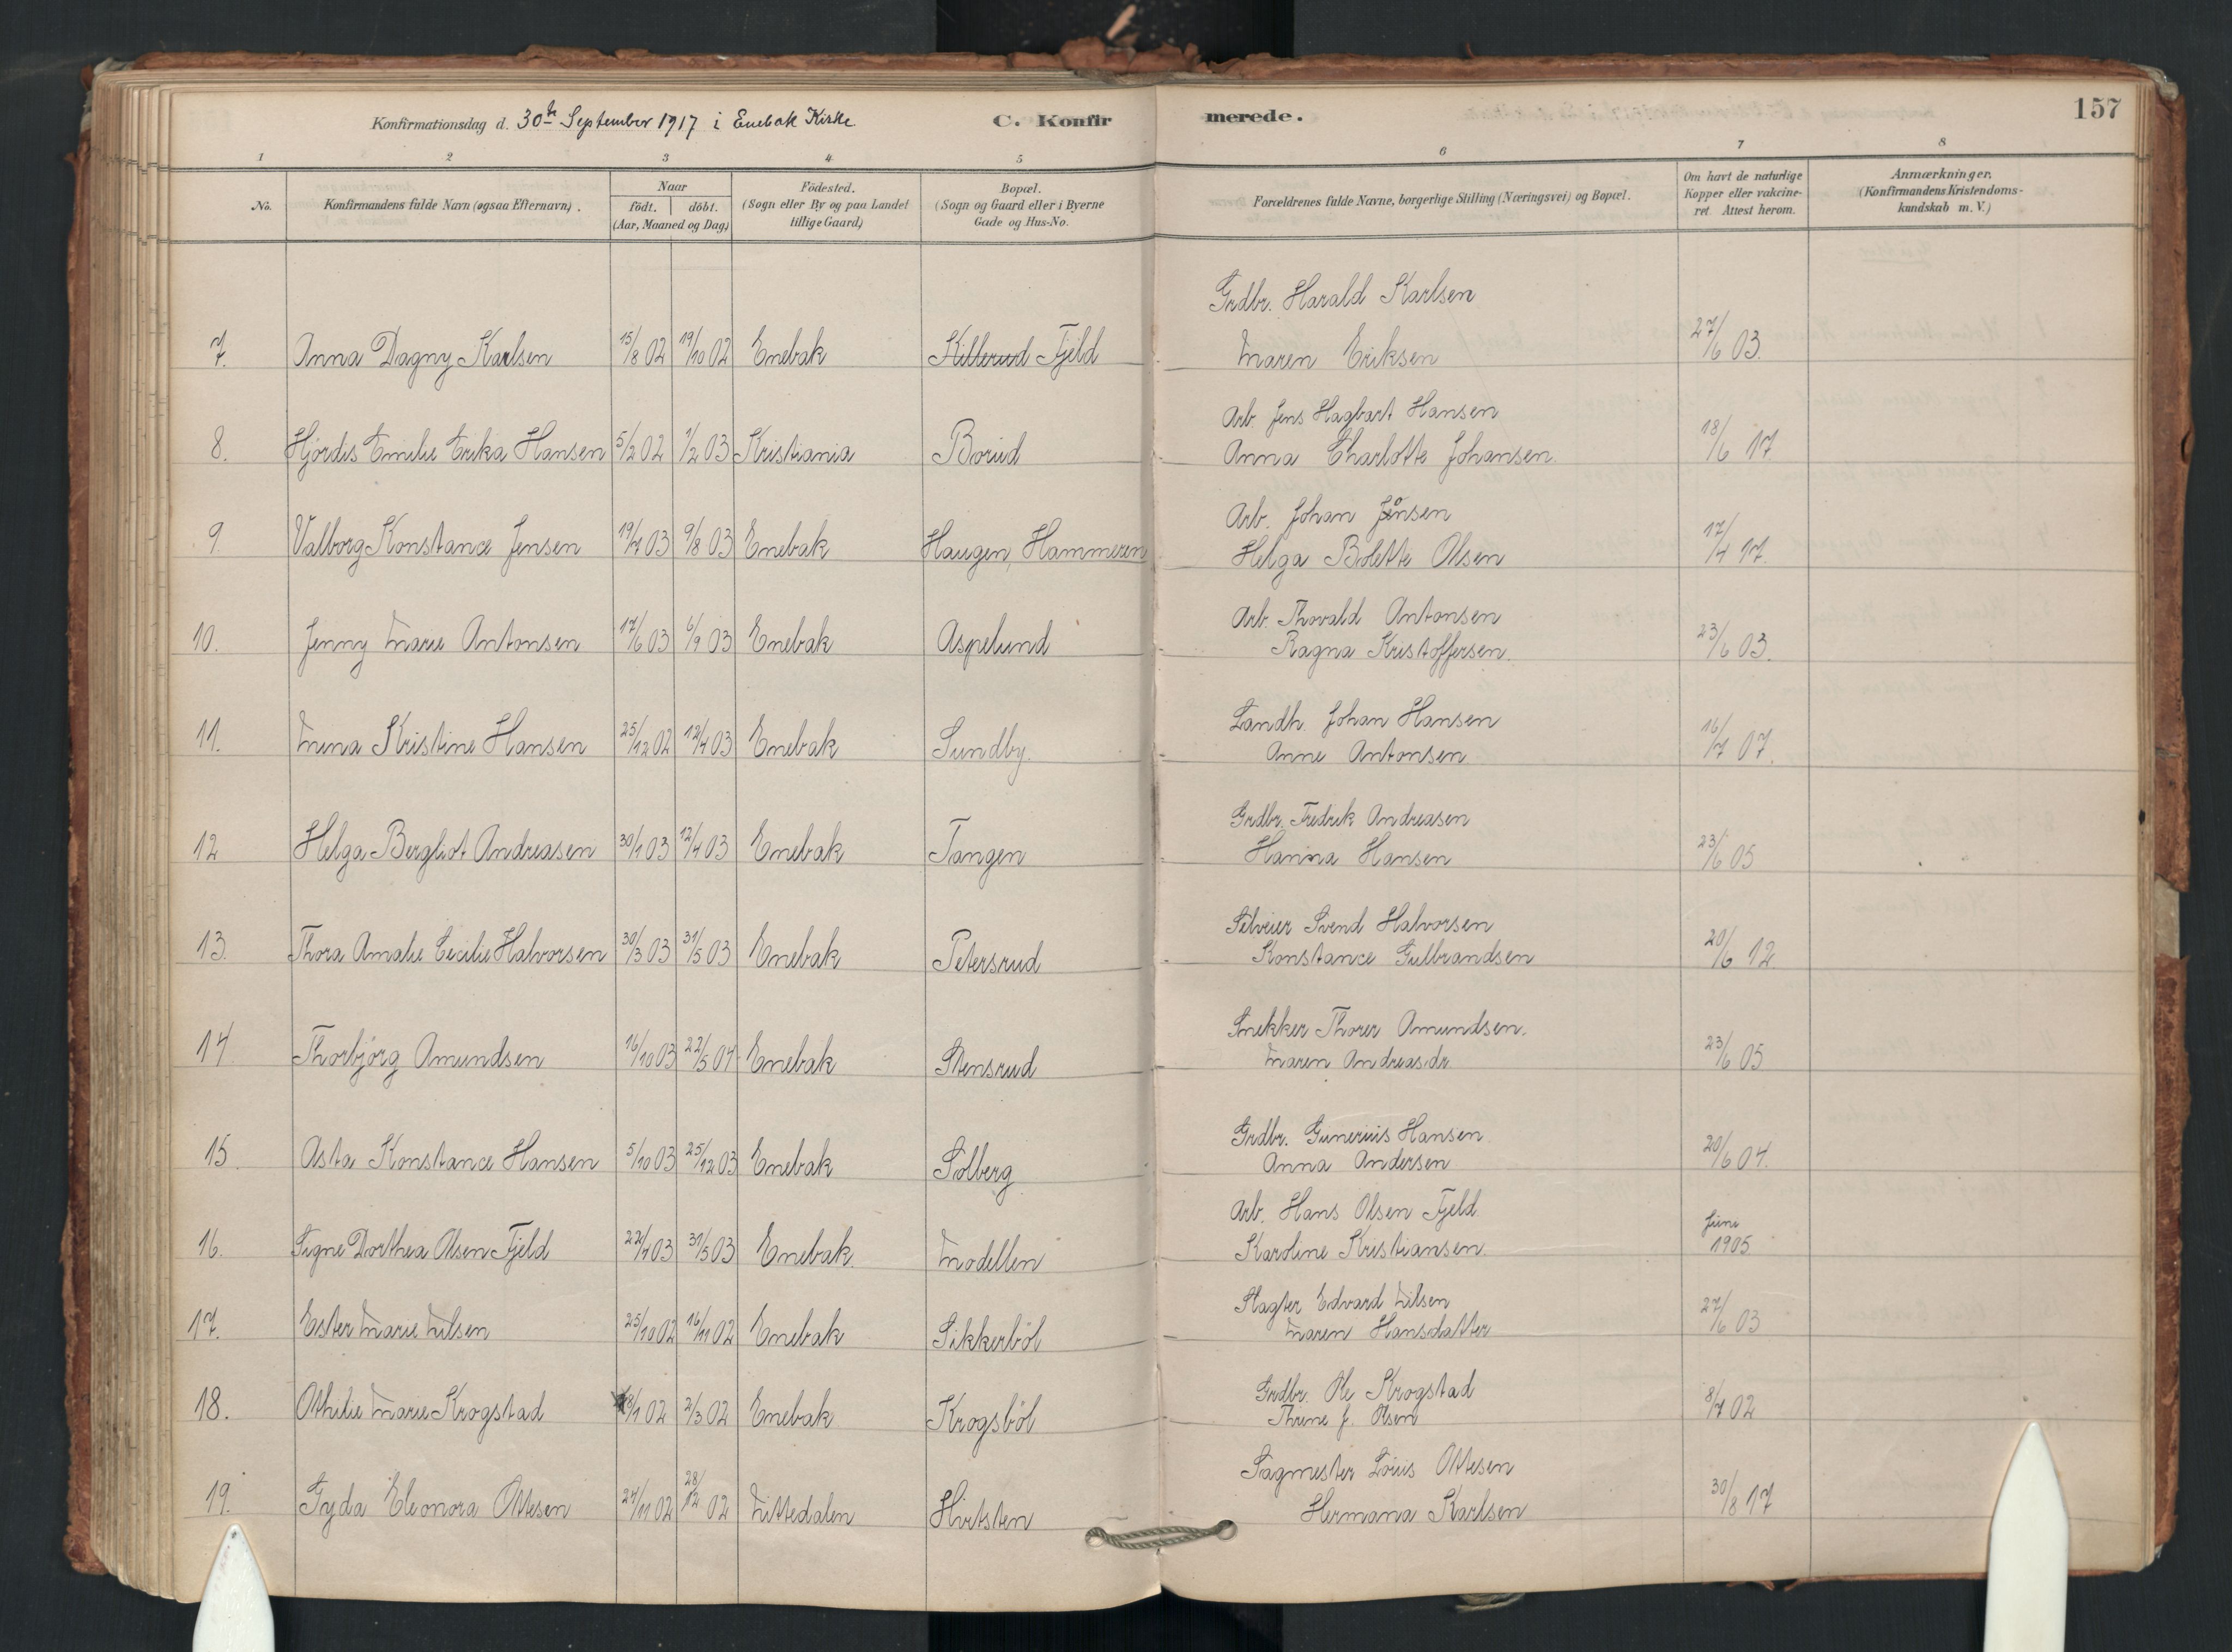 Konfirmationsdag d. 30te September 1917 i Enebak Kirke
C. Konfirmerede.
157
1 2 3 4 5 6 7 8
No.
Konfirmandens fulde Navn (ogsaa Efternavn).
Naar
födt. döbt.
(Aar, Maaned og Dag.)
Födested.
(Sogn eller By og paa Landet
tillige Gaard.)
Bopæl.
(Sogn og Gaard eller i Byerne
Gade og Hus-No.
Forældrenes fulde Navne, borgerlige Stilling (Næringsvei) og Bopæl.
Om havt de naturlige
Kopper eller vakcine-
ret. Attest herom.
Anmærkninger.
(Konfirmandens Kristendoms-
kundskab m. V.)
Grdbr. Harald Karlsen
7. Anna Dagny Karlsen 15/8 02 19/10 02 Enebak Killerud Fjeld Maren Eriksen 27/6 03.
Arb. Jens Hagbart Hansen
8. Hjördis Emilie Erika Hansen 5/2 02 1/2 03 Kristiania Borud Anna Charlotte Johansen. 18/6 17
Arb. Johan Jensen
9. Valborg Konstance Jensen 19/4 03 9/8 03 Enebak Haugen, Hammeren Helga Bolette Olsen 17/4 17.
Arb. Thorvald Antonsen
10. Jenny Marie Antonsen 17/6 03 6/9 03 Enebak Aspelund Ragna Kristoffersen. 23/6 03.
Landh. Johan Hansen
11. Mena Kristine Hansen 25/12 02 12/4 03 Enebak Sundby. Anne Antonsen 16/7 07.
Grdbr. Fredrik Andreasen
12 Helga Bergliot Andreasen 30/1 03 12/4 03 Enebak Tangen Hanna Hansen 23/6 05
Selveier Svend Halvorsen
13. Thora Amalie Cecilie Halvorsen 30/3 03 31/5 03 Enebak Petersrud Konstance Gulbrandsen 20/6 12
Snekker Thorer Amundsen.
14 Thorbjörg Amundsen 16/10 03 22/5 04 Enebak Stensrud Maren Andreasdr 23/6 05
Grdbr. Gunerius Hansen
15. Asta Konstance Hansen 5/10 03 25/12 03 Enebak Solberg Anna Andersen 20/6 04.
Arb. Hans Olsen Fjeld.
16. Signe Dorthea Olsen Fjeld 22/4 03 31/5 03 Enebak. Modellen Karoline Kristiansen. Juni 1905
Slagter Edvard Nilsen
17. Ester Marie Nilsen 25/10 02 16/11 02 Enebak Sikkerböl Maren Hansdatter 27/6 03
Grdbr. Ole Krogstad
18. Othilie Marie Krogstad 8/1 02 2/3 02 Enebak Krogsböl Thrine J. Olsen 8/7 02
Sagmester Louis Ottesen
19. Gyda Eleonora Ottesen 24/11 02 28/12 02 Nittedalen Hvitsten Hermana Karlsen 30/8 17